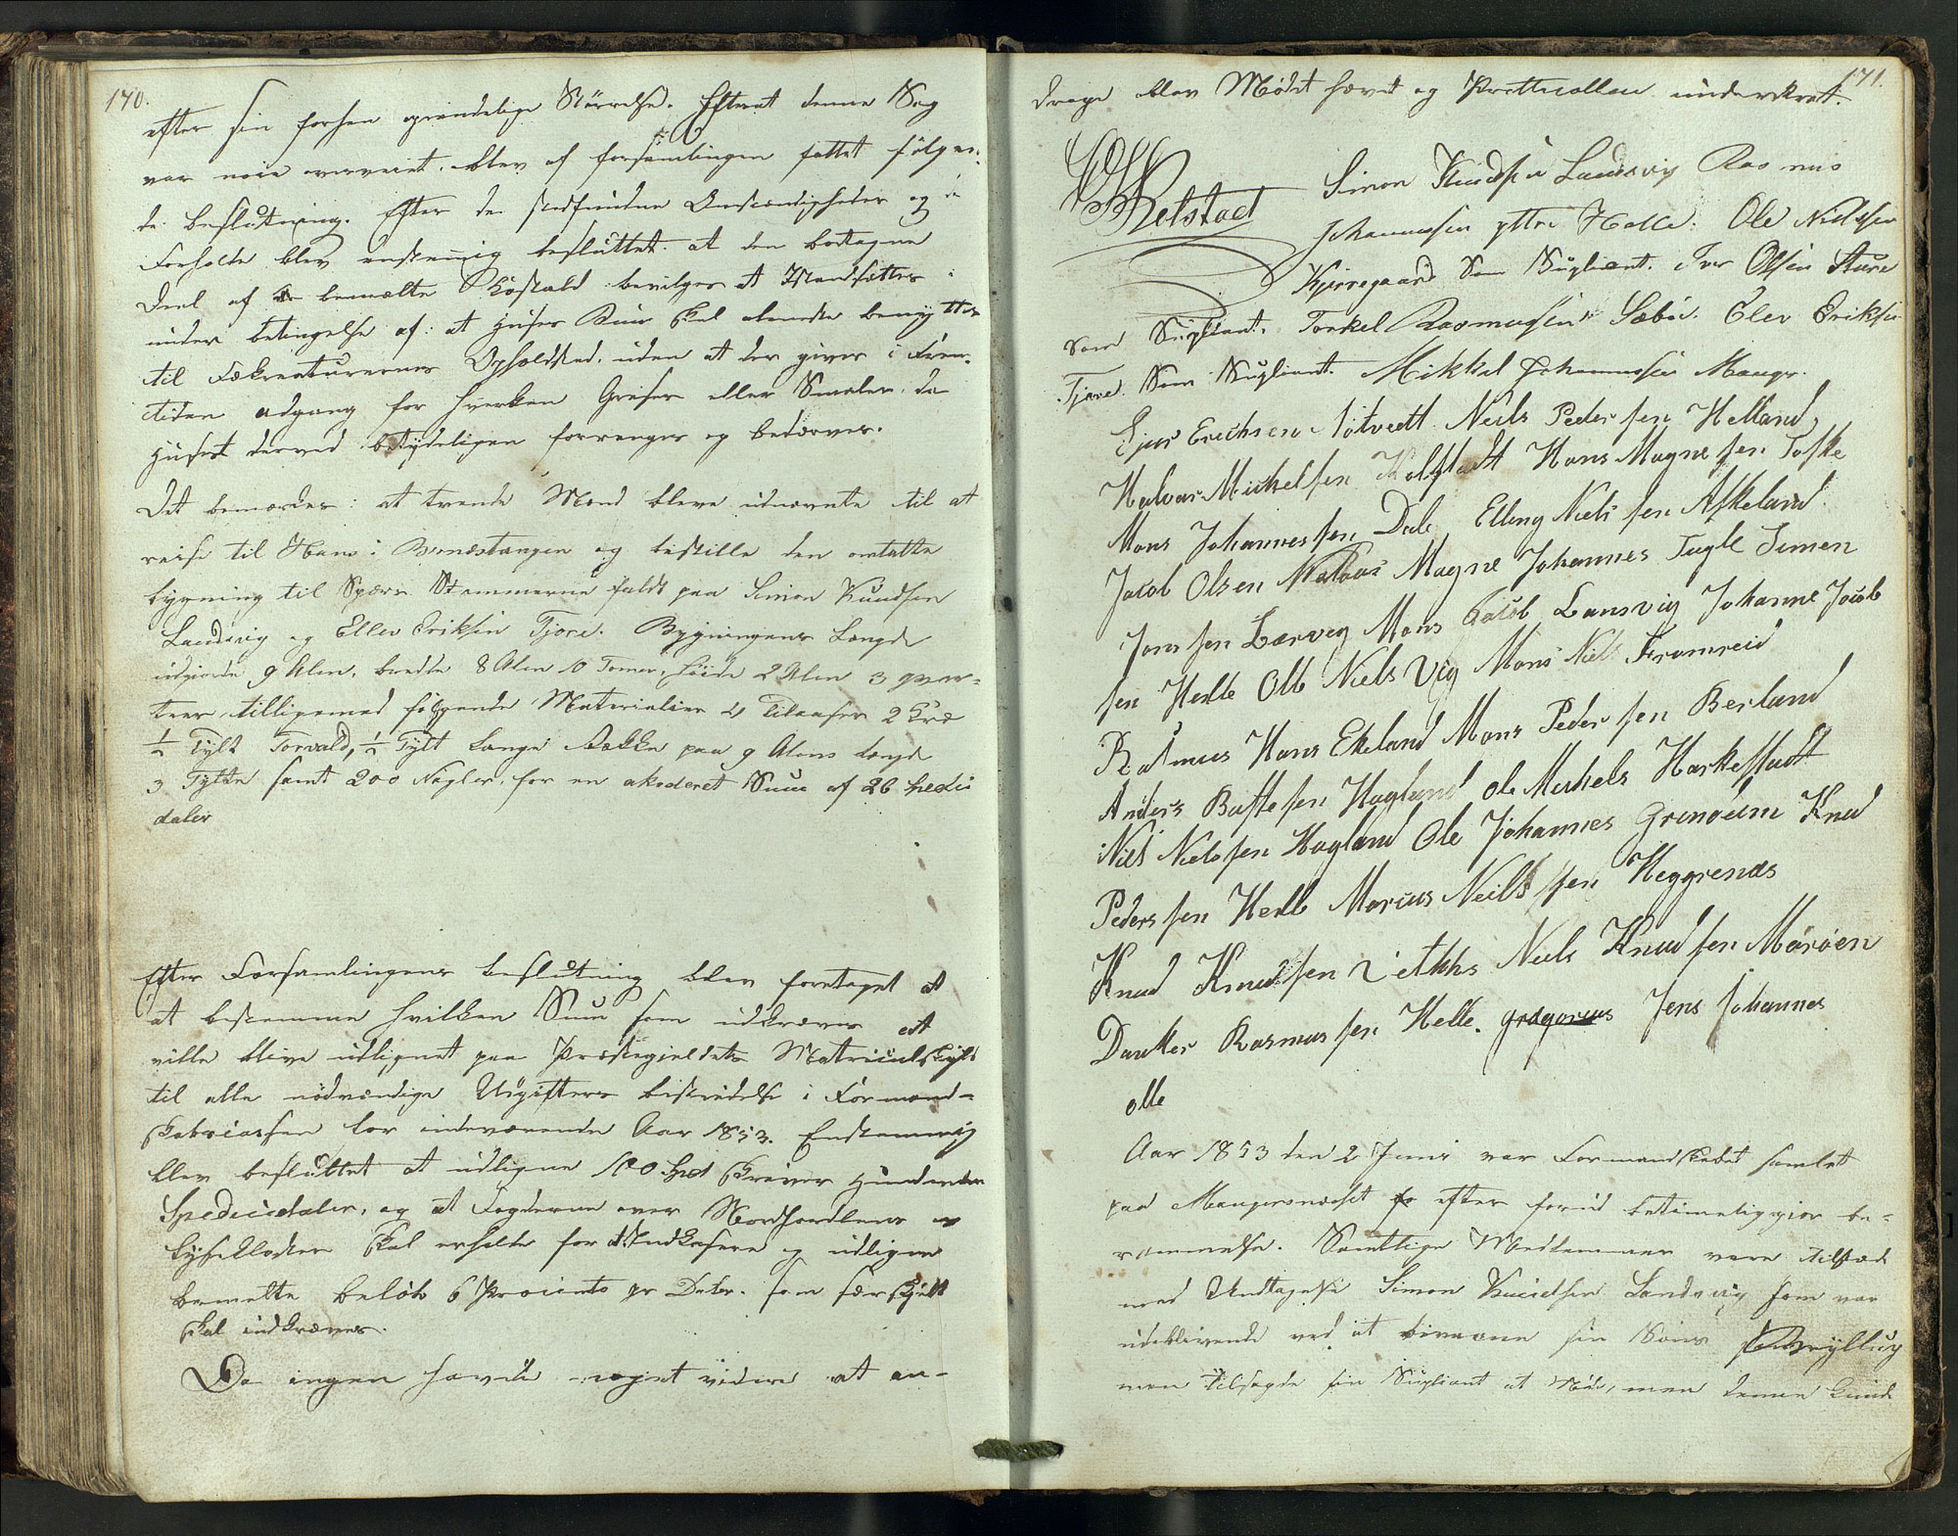 170.
efter sin forhen grændelige Störrelse. Efterat denne Sag
var nöie overveiet, blev af forsamlingen fattet fölgen-
de Beslutning. Efter de stedfundne Omstændigheder og
Forholde blev enstemmig besluttet at den bortagne
Deel af bemælte bevilges at Istandsættes
under betingelse af: at Huset Kun skal alenest benyttes
til Fækreaturernes Opholdsted, uden at der gives i Frem-
tiden adgang for hverken Griser eller Smaler, da
Huset derved betydeligen forrenges og bedærves.
Det bemærkes: at tvende Mænd bleve udnævnte til at
reise til Hans i og bestille den omtalte
bygning til Stemmerne faldt paa Simon Knudsen
Landsvig og Ellev Eriksen Tjore. Bygningens Længde
udgjorde 9 Alen, bredde 8 Alen 10 Tomer, höide 2 Alen 3 qvar-
teer, tilligemed fölgende Materialier 4 2
½ Tylt ½ Tylt Lange paa 9 Alens Længde
3 Tylter samt 200 Nagler, for en akorderet Sum af 26 Speci
daler
Efter Forsamlingens beslutning blev foretaget at
at bestemme hvilken Sum som udkræves at
ville blive udlignet paa Præstegieldets Matriculskyld
til alle nödvændige Udgifters bestridelse i Formand-
skabscassen for indeværende Aar 1853. Enstemmig
blev besluttet at udligne 100 Spd skriver Hundrede
Speciedaler, og at Fogderne over Nordhordlens og
Lysekloster skal erholde for at Indkasere og udligne
bemelte beløb 6 Procento pr Daler. som særskjilt
skal indkræves.
Da ingen havde noget videre at an-
171.
drage blev Mödet hævet og Prottocollen underskret.
Helstad Simon Knudsen Landsvig Rasmus
Johannesen yttre Helle. Ole Nielsen
Kjerregaard Som Supliant. Iver Olsen Sture
som Supliant. Torkel Rasmusen Sæbö. Elev Eriksen
Tjore Som Supliant. Mikkel Johannesen Manger.
Ejus Erichsen Nötvedt Neils Peder sen Helland
Halvar Mickelsen Kolstadt Hans Magne sen Toske
Mons Johannes sen Dale Elling Niels sen Askeland
Jacob Olsen Magne Johannes Tugle Simen
Jons sen Lærvig Mons Jacob Lansvig Johanne Jacob
sen Helle Olle Niels Vig Mons Niels Fromreid
Rasmus Hans Ekeland Mons Peder sen Berland
Anders sen Hagland ole Mickels Harkestadt
Nils Niels sen Hagland Ole Johannes Grinöem Knud
Peders sen Helle Marius Neils sen Heggrenæs
Knud Knud sen Neels Knud sen Maröen
Danker Rasmus sen Helle. gregorius Jens Johannes
olle
Aar 1853 den 2 Juni var Formandskabet samlet
paa Mangersnæset efter forud betimeliggior be-
rammelse. Samtlige Medlemmer vare tilstæde
med Undtagelse Simon Knudsen Landsvig som var
udeblivende ved at bivaane sin Söns Bryllup
men tilsagde sin Supliant at Möde, men denne kunde